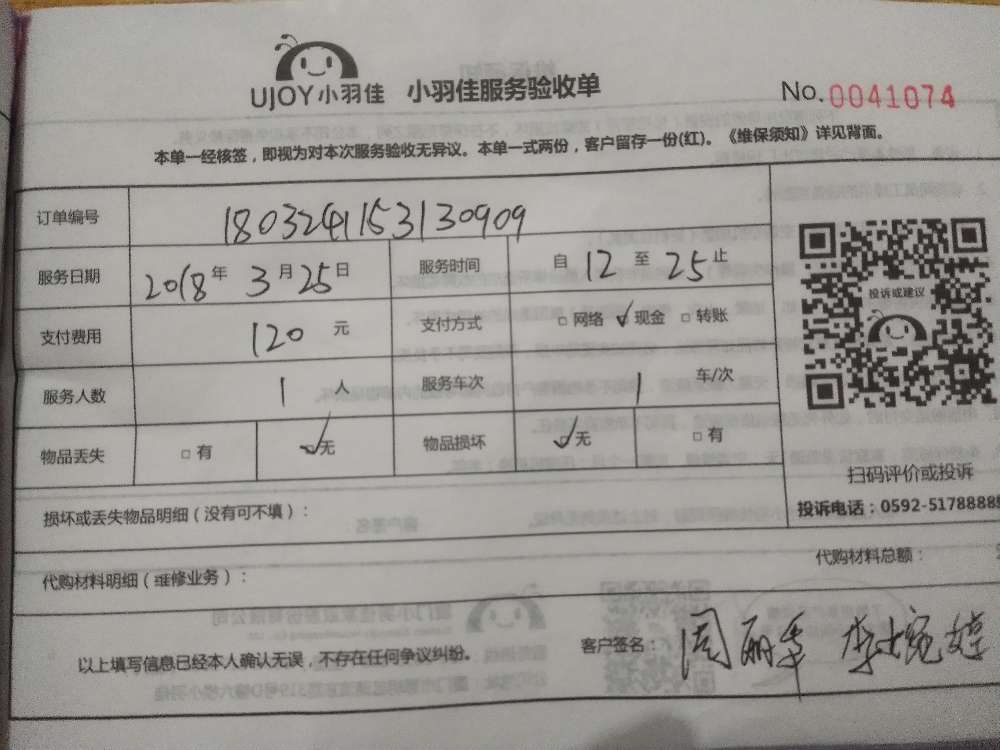 UJOY小羽佳 小羽佳服务验收单 No.0041074
本单一经核签，即视为对本次服务验收无异议。本单一式两份，客户留存一份(红)。《维保须知》详见背面。
订单编号 1803241153130909
服务日期 2018年3月25日 服务时间 自12至25止
支付费用 120元 支付方式 □网络 ✓现金 □转账
服务人数 1人 服务车次 1车/次
物品丢失 □有 ☑无 物品损坏 ☑无 □有
投诉或建议
扫码评价或投诉
投诉电话：0592-5178888
损坏或丢失物品明细（没有可不填）：
代购材料明细（维修业务）： 代购材料总额：
以上填写信息已经本人确认无误，不存在任何争议纠纷。 客户签名：